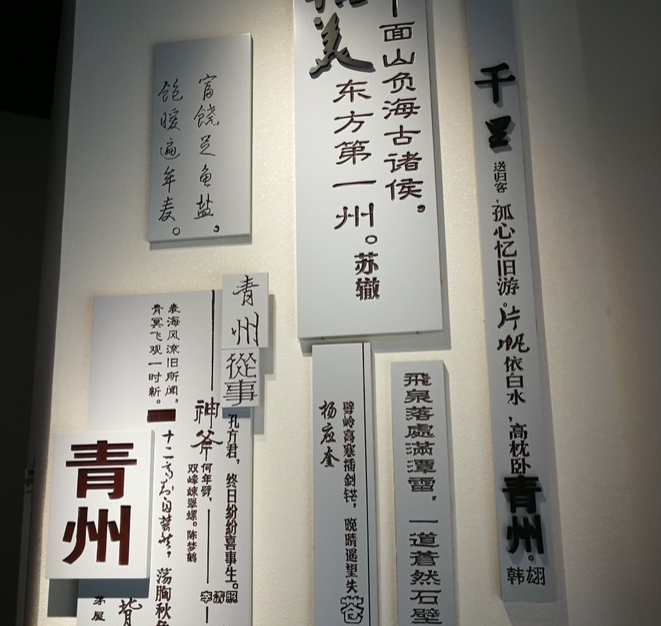 富饶足鱼盐，
饱暖遍年麦。
美
面山负海古诸侯，
东方第一州。苏辙
千里
送归客，孤心忆旧游。片帆依白水，高枕卧青州。韩翃
青州
從事
孔方君，终日纷纷喜事生。
李清照
表海风流旧所闻，
青冥飞观一时新。
神斧
何年劈，
双峰峡翠螺。陈梦鹤
荡胸秋
青州
茅屋
劈岭高塞插剑铓，晚晴遥望失苍
杨应奎
飛泉落處滿潭雷，一道蒼然石壁